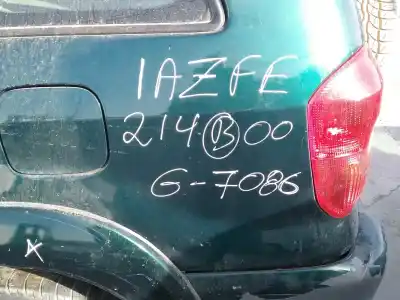 1AZFE
214B00
G-7086